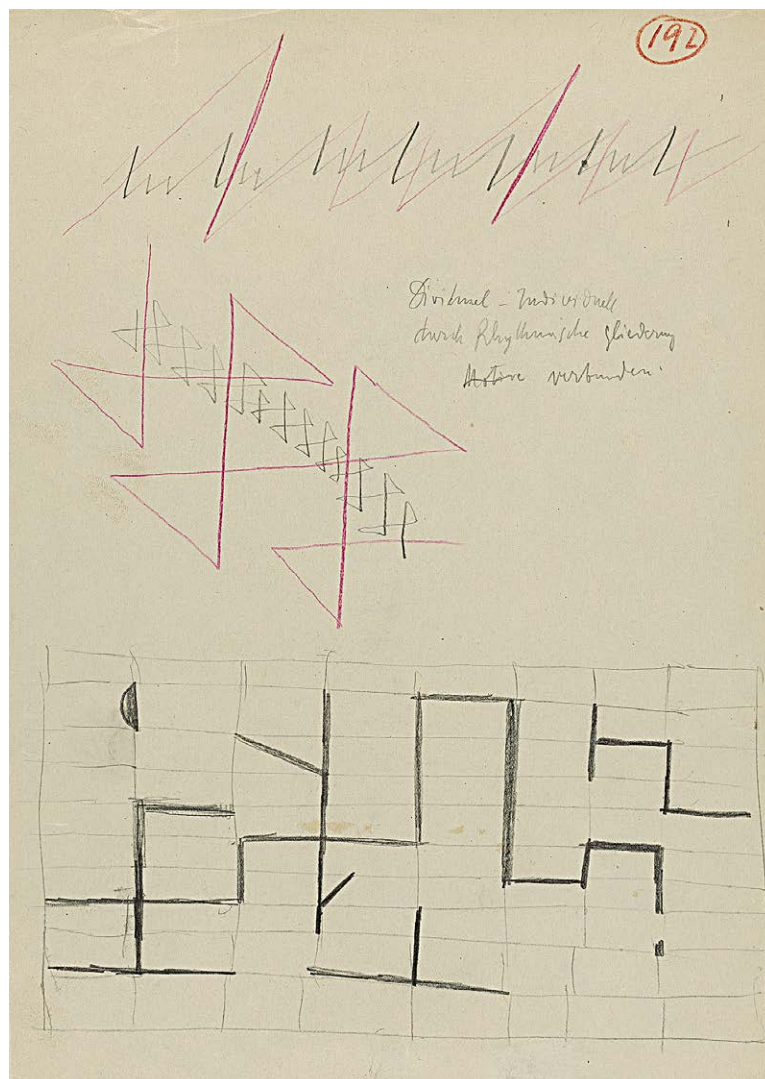 192
Dividuel - Individuell
durch Rhythmische gliederung
Motive verbunden.